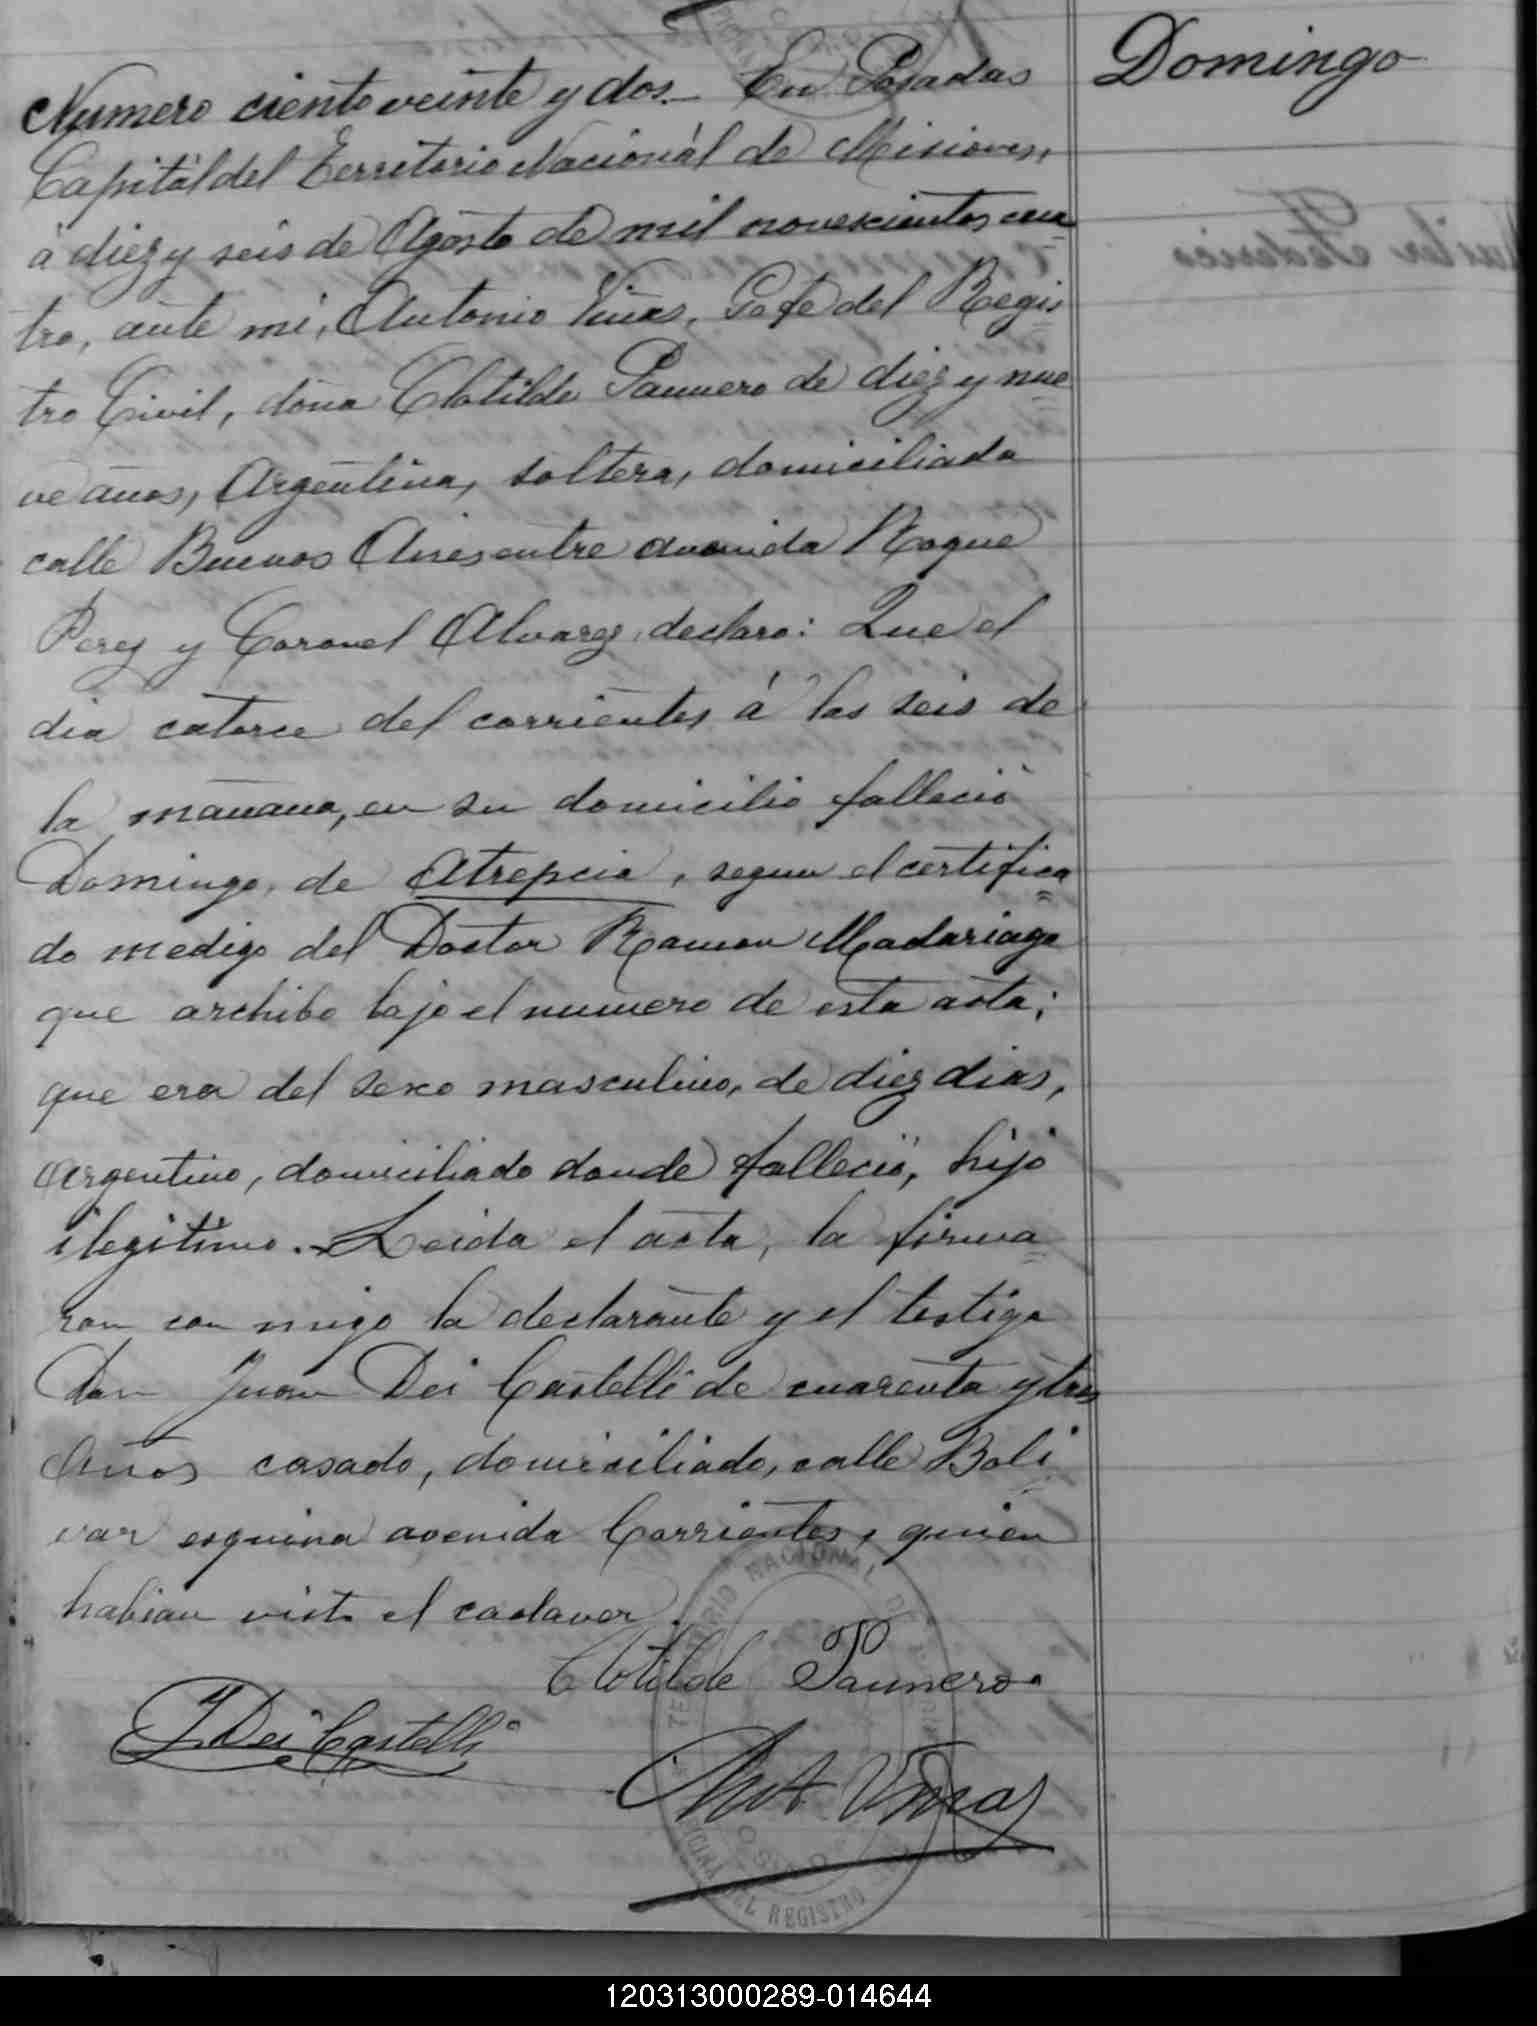 Domingo
Numero ciento veinte y dos.- En Posadas
Capitál del Territorio Nacionál de Misiones,
á diez y seis de Agosto de mil novescientos cua
tro, ante mi, Antonio Viñas, Gefe del Regis
tro Civil, doña Clotilde Paunero de diez y nue
ve años, Argentina, soltera, domiciliada
calle Buenos Aires entre avenida Roque
Perez y Coronel Alvarez, declaro: Que el
dia catorce del corrientes á las seis de
la mañana, en su domicilio falleció
Domingo, de Atrepcia, segun el certifica
do medigo del Doctor Ramon Madariaga
que archibo bajo el numero de esta acta;
que era del sexo masculino, de diez dias,
Argentino, domiciliado donde falleció, hijo
ilegitimo.- Leida el acta, la firma
ron con migo la declarante y el testigo
Don Juan Dei Castelli de cuarenta y tres
Años casado, domiciliado, calle Boli
var esquina avenida Corrientes, quien
habian visto el cadaver.
Clotilde Paunero.
J. Dei Castelli
Ant Viñas
REGISTRO
120313000289-014644